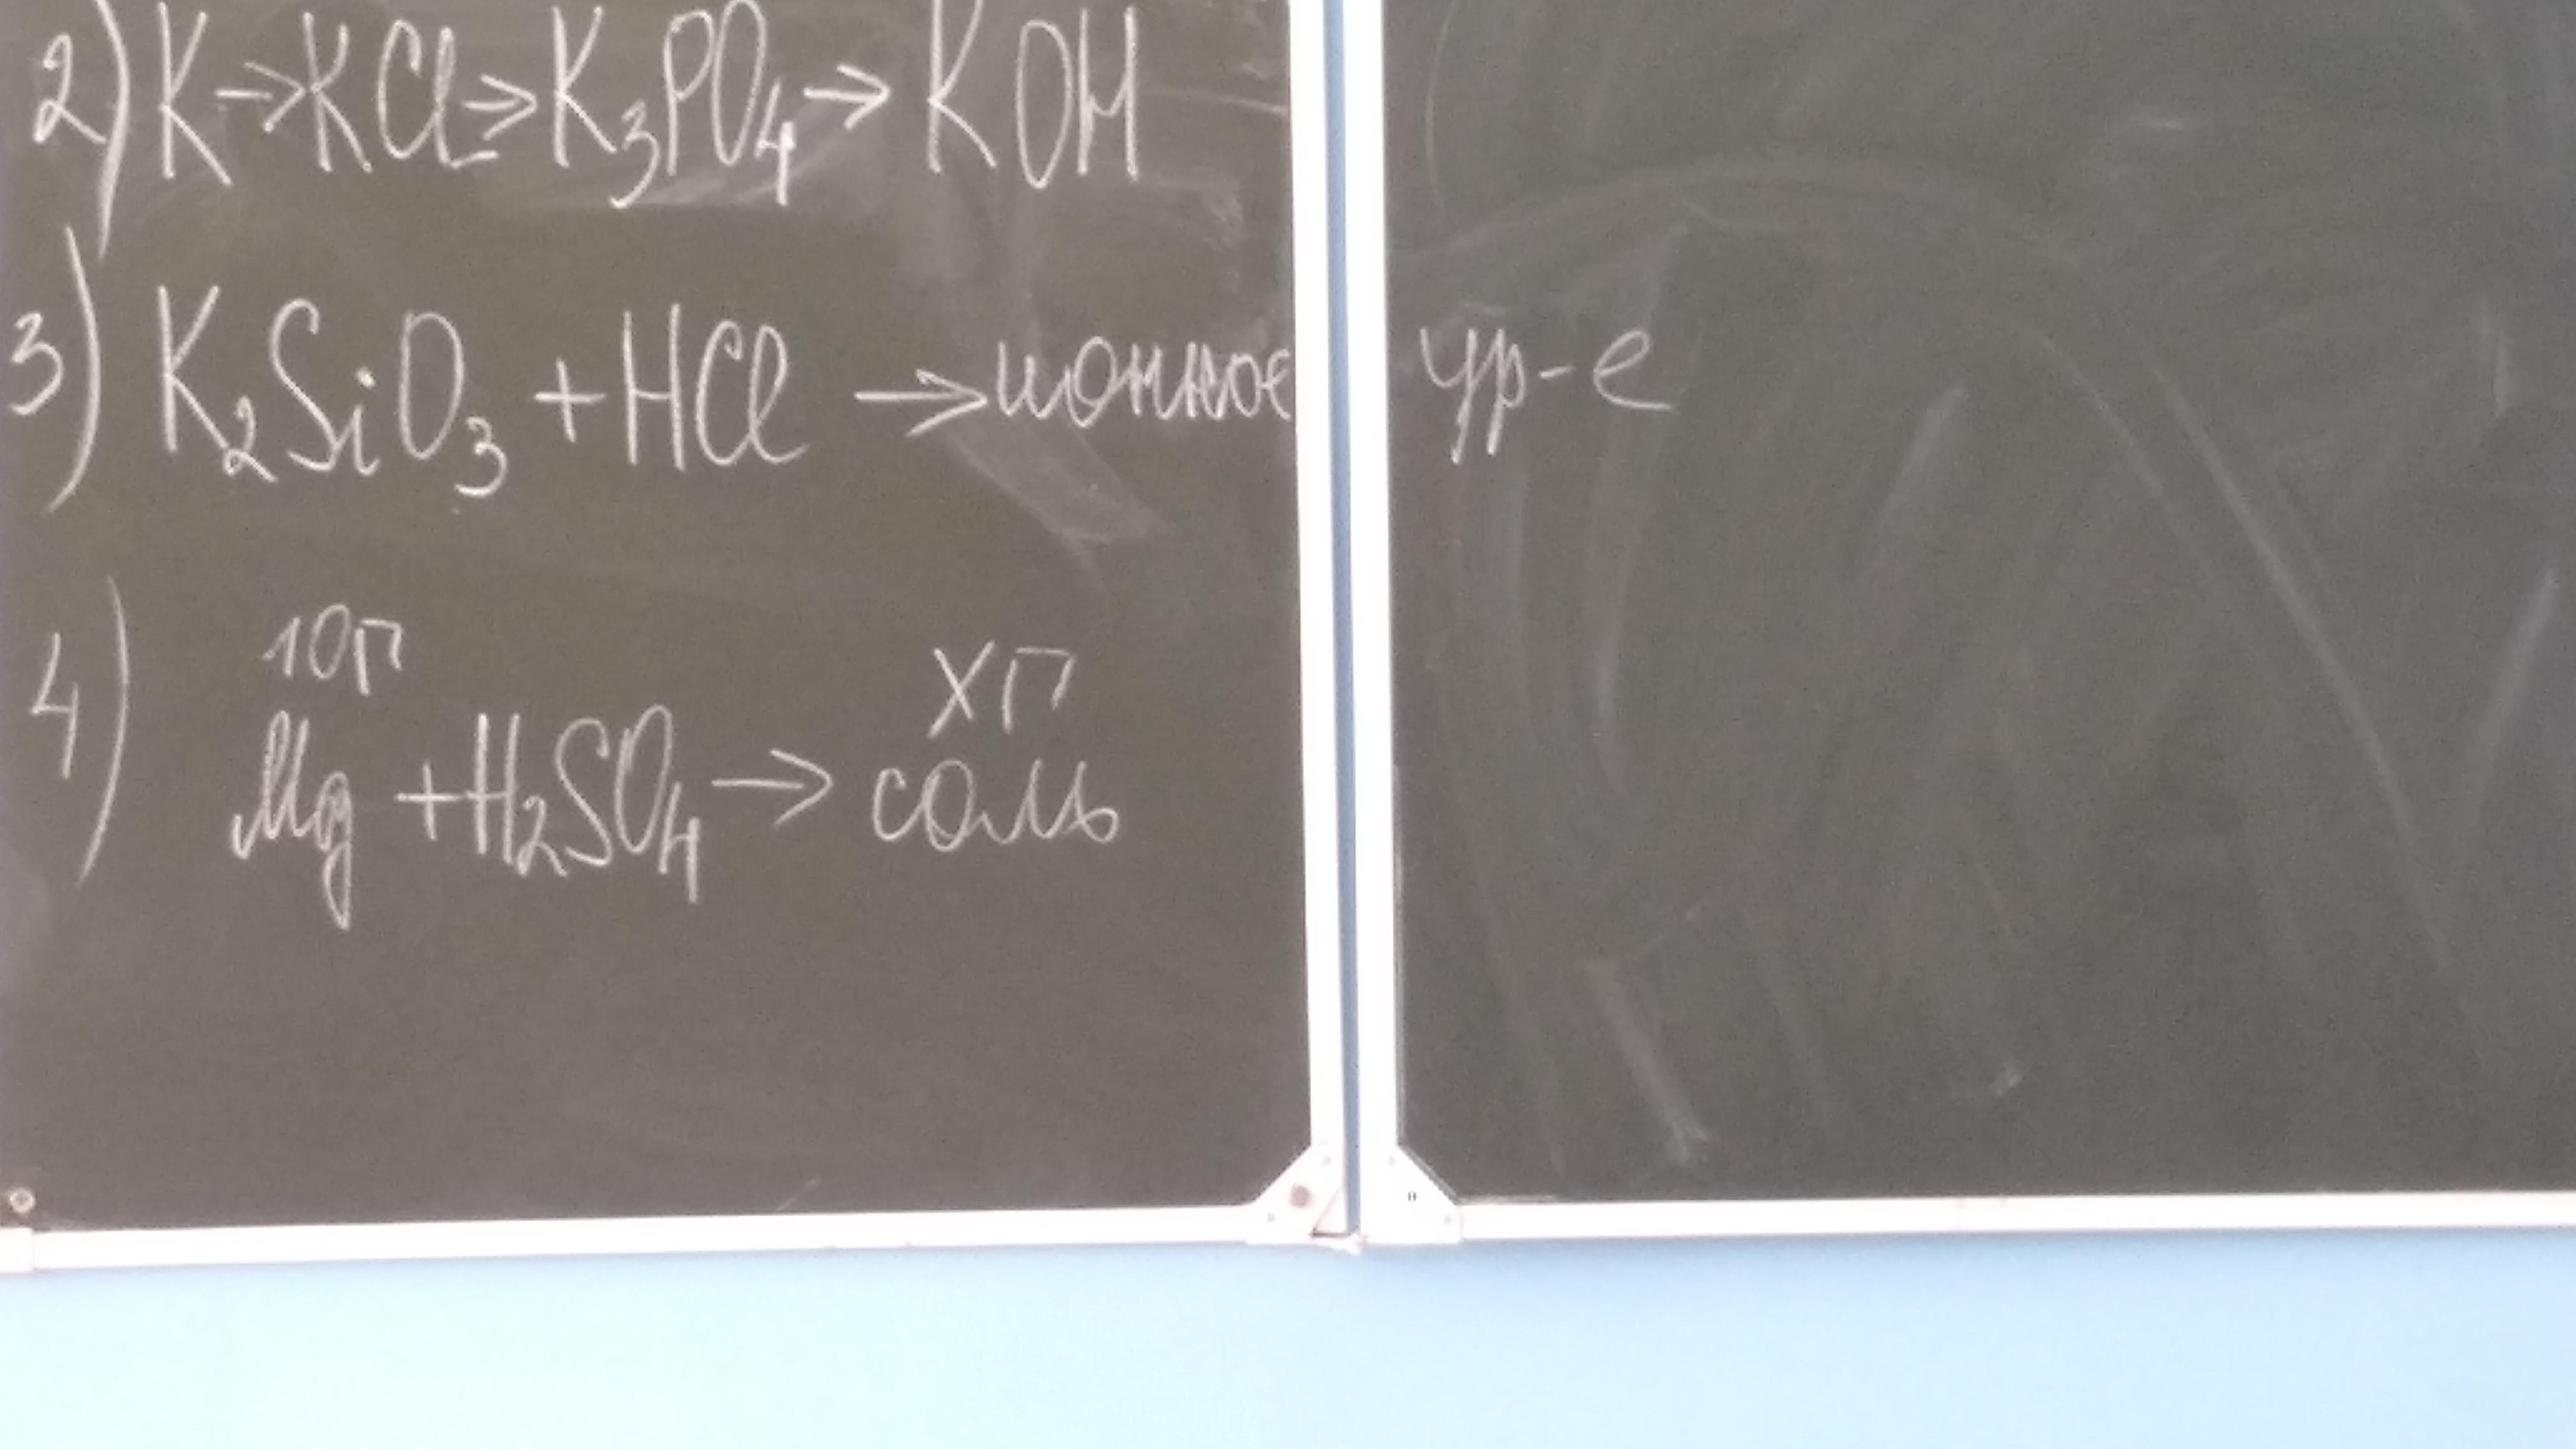 2) K → KCl → K₃PO₄ → KOH
3) K₂SiO₃ + HCl → ионное ур-е
10г хг
4) Mg + H₂SO₄ → соль